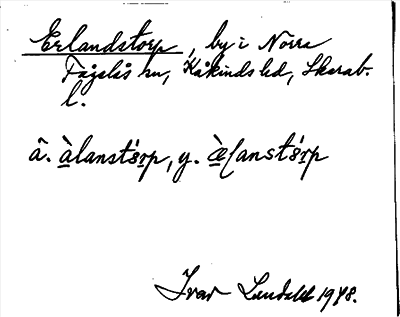 Erlandstorp, by i Norra
Fågelås sn, Kåkinds hd, Skarab.
l.
â. àlanstórp, y. æ̀lanstórp
Ivar Lundahl 1948.